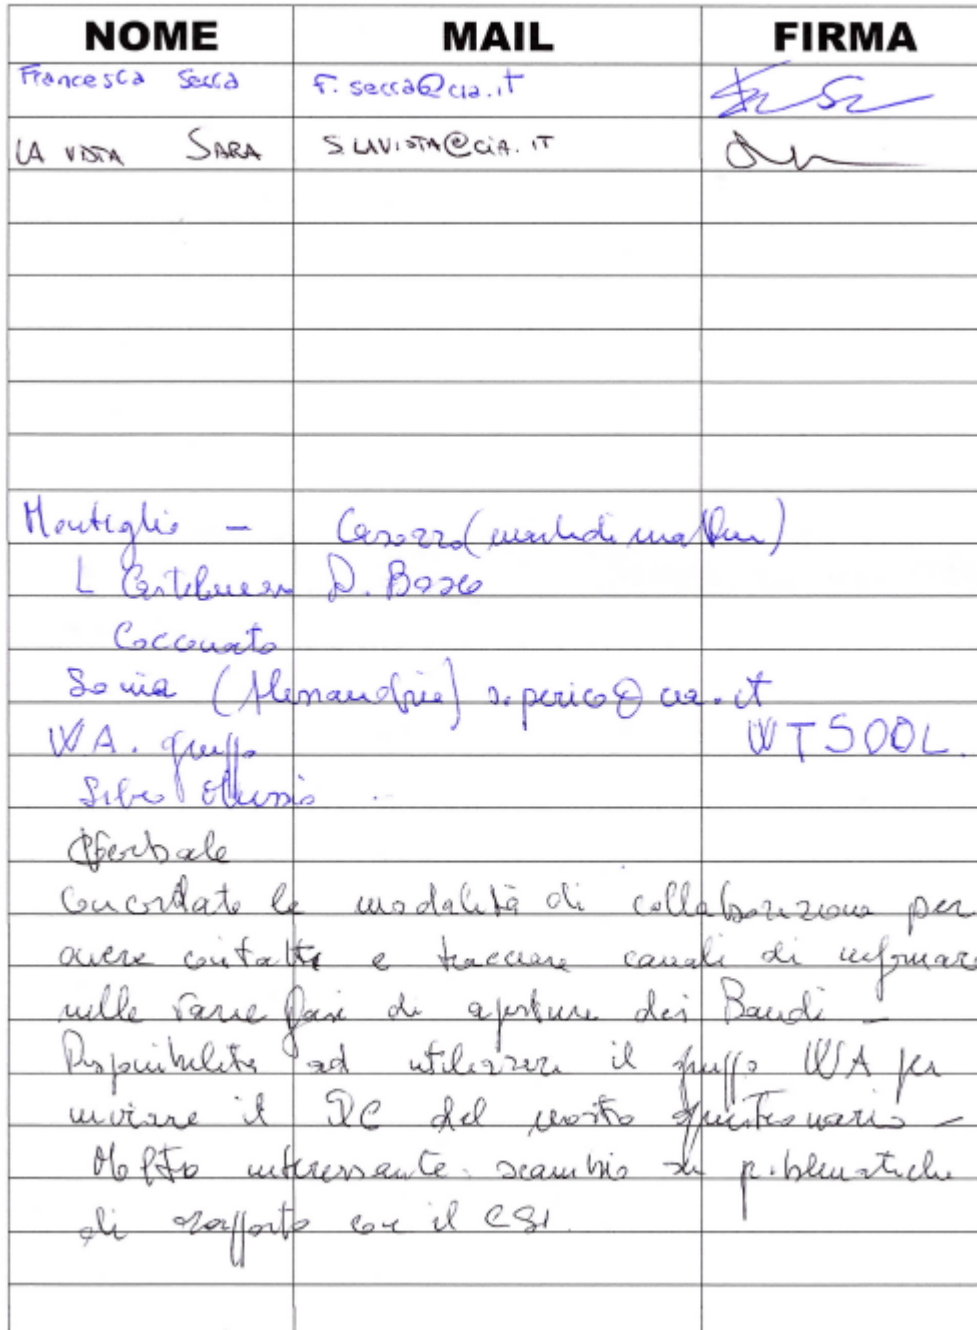 NOME MAIL FIRMA
Francesca Secca F.secca@cia.it
LA VISTA SARA S.LAVISTA@CIA.IT
Montiglio - Cerozzo (
L Castelnuovo D. Bosco
Cocconato
Sonia (Alessandria) s.perico@cia.it
WA. gruppo WTSOOL.
Verbale
Concordate le modalità di collaborazione per
avere contatti e tracciare canali di informare
nelle varie fasi di apertura dei Bandi -
Disponibilità ad utilizzare il gruppo WA per
inviare il QC del nostro questionario -
Molto interessante scambio su problematiche
di rapporto con il CSI.